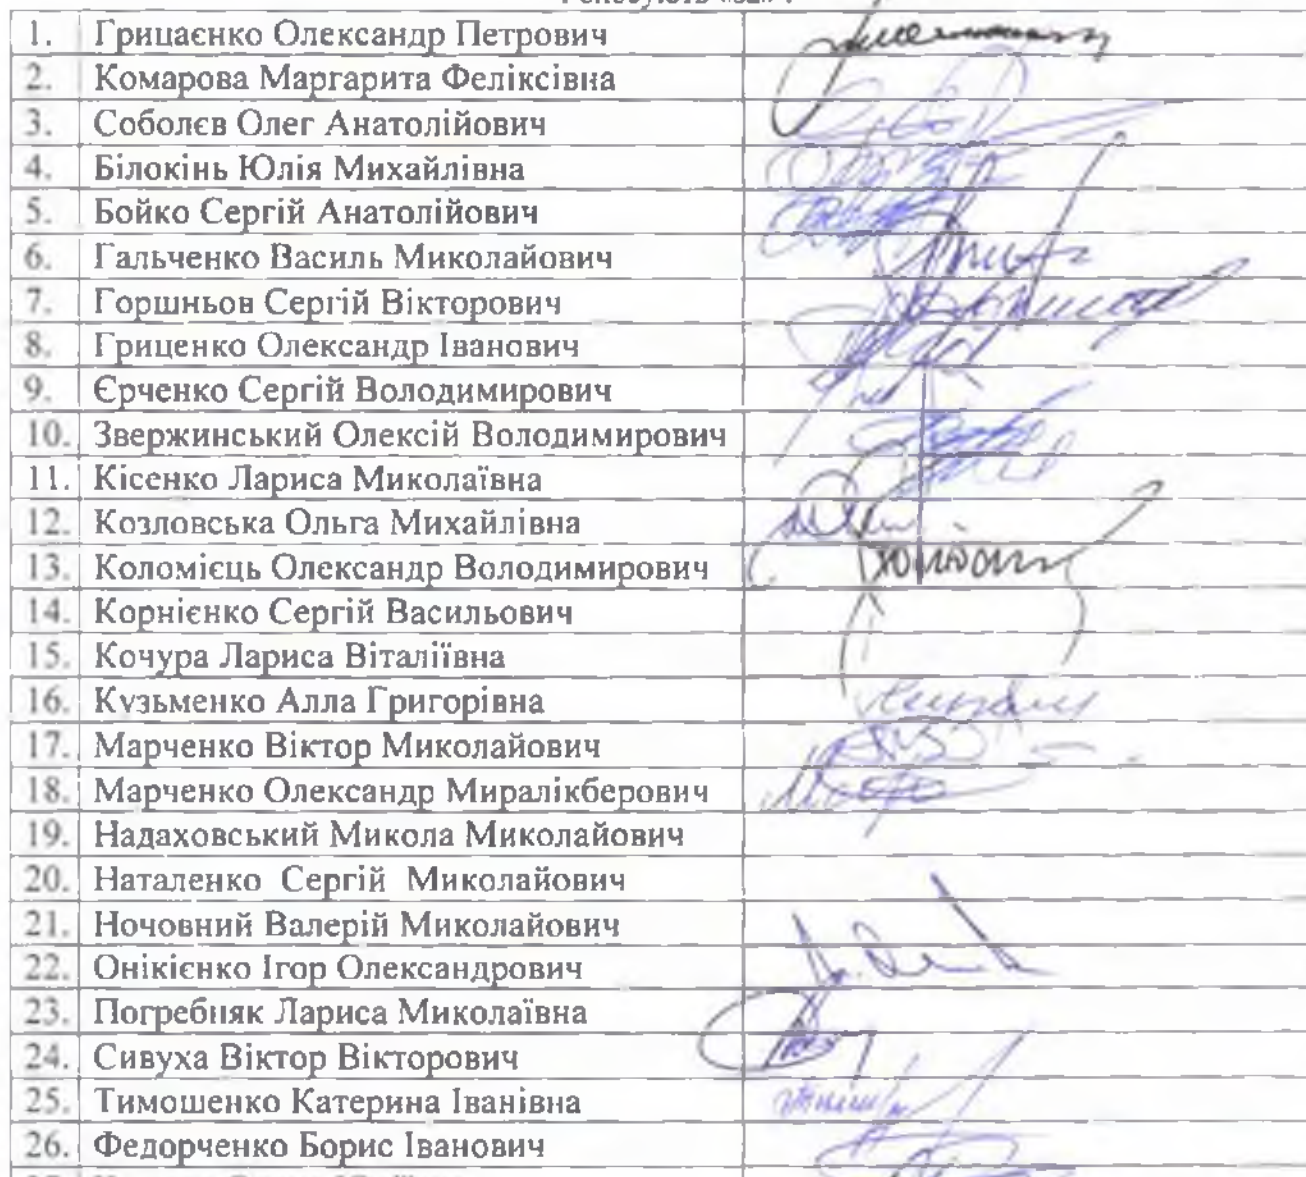 1. Грицаєнко Олександр Петрович
2. Комарова Маргарита Феліксівна
3. Соболєв Олег Анатолійович
4. Білокінь Юлія Михайлівна
5. Бойко Сергій Анатолійович
6. Гальченко Василь Миколайович
7. Горшньов Сергій Вікторович
8. Гриценко Олександр Іванович
9. Єрченко Сергій Володимирович
10. Звержинський Олексій Володимирович
11. Кісенко Лариса Миколаївна
12. Козловська Ольга Михайлівна
13. Коломієць Олександр Володимирович
14. Корнієнко Сергій Васильович
15. Кочура Лариса Віталіївна
16. Кузьменко Алла Григорівна
17. Марченко Віктор Миколайович
18. Марченко Олександр Миралікберович
19. Надаховський Микола Миколайович
20. Наталенко Сергій Миколайович
21. Ночовний Валерій Миколайович
22. Онікієнко Ігор Олександрович
23. Погребняк Лариса Миколаївна
24. Сивуха Віктор Вікторович
25. Тимошенко Катерина Іванівна
26. Федорченко Борис Іванович